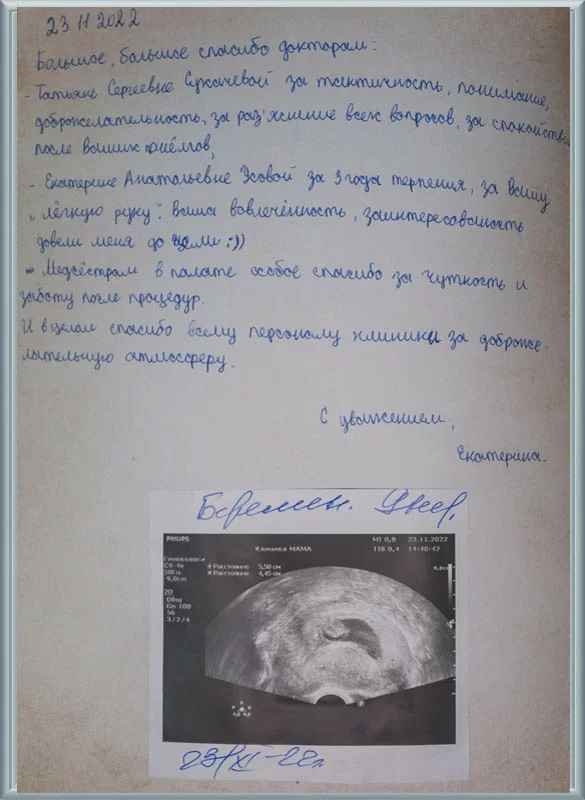 23 11 2022
Большое, большое спасибо докторам:
- Татьяне Сергеевне за тактичность, понимание,
доброжелательность, за раз'яснение всех вопросов, за спокойствие
после Ваших приёмов;
- Екатерине Анатольевне Усовой за 3 года терпения, за Вашу
„лёгкую руку". Ваша вовлечённость, заинтересованность
довели меня до цели :))
- Медсёстрам в палате особое спасибо за чуткость и
заботу после процедур.
И в целом спасибо всему персоналу клиники за доброже-
лательную атмосферу.
С уважением,
Екатерина.
Беремен.
PHILIPS
MI 0,8 23.11.2022
Клиника МАМА
TIB 0,4 14:40:42
Гинекологи
C9-4v
50Гц
9,0cm
+ Расстояние 5,58 см
× Расстояние 4,45 см
2D
Общ
Gn 100
56
3/2/4
23/XI-22г.